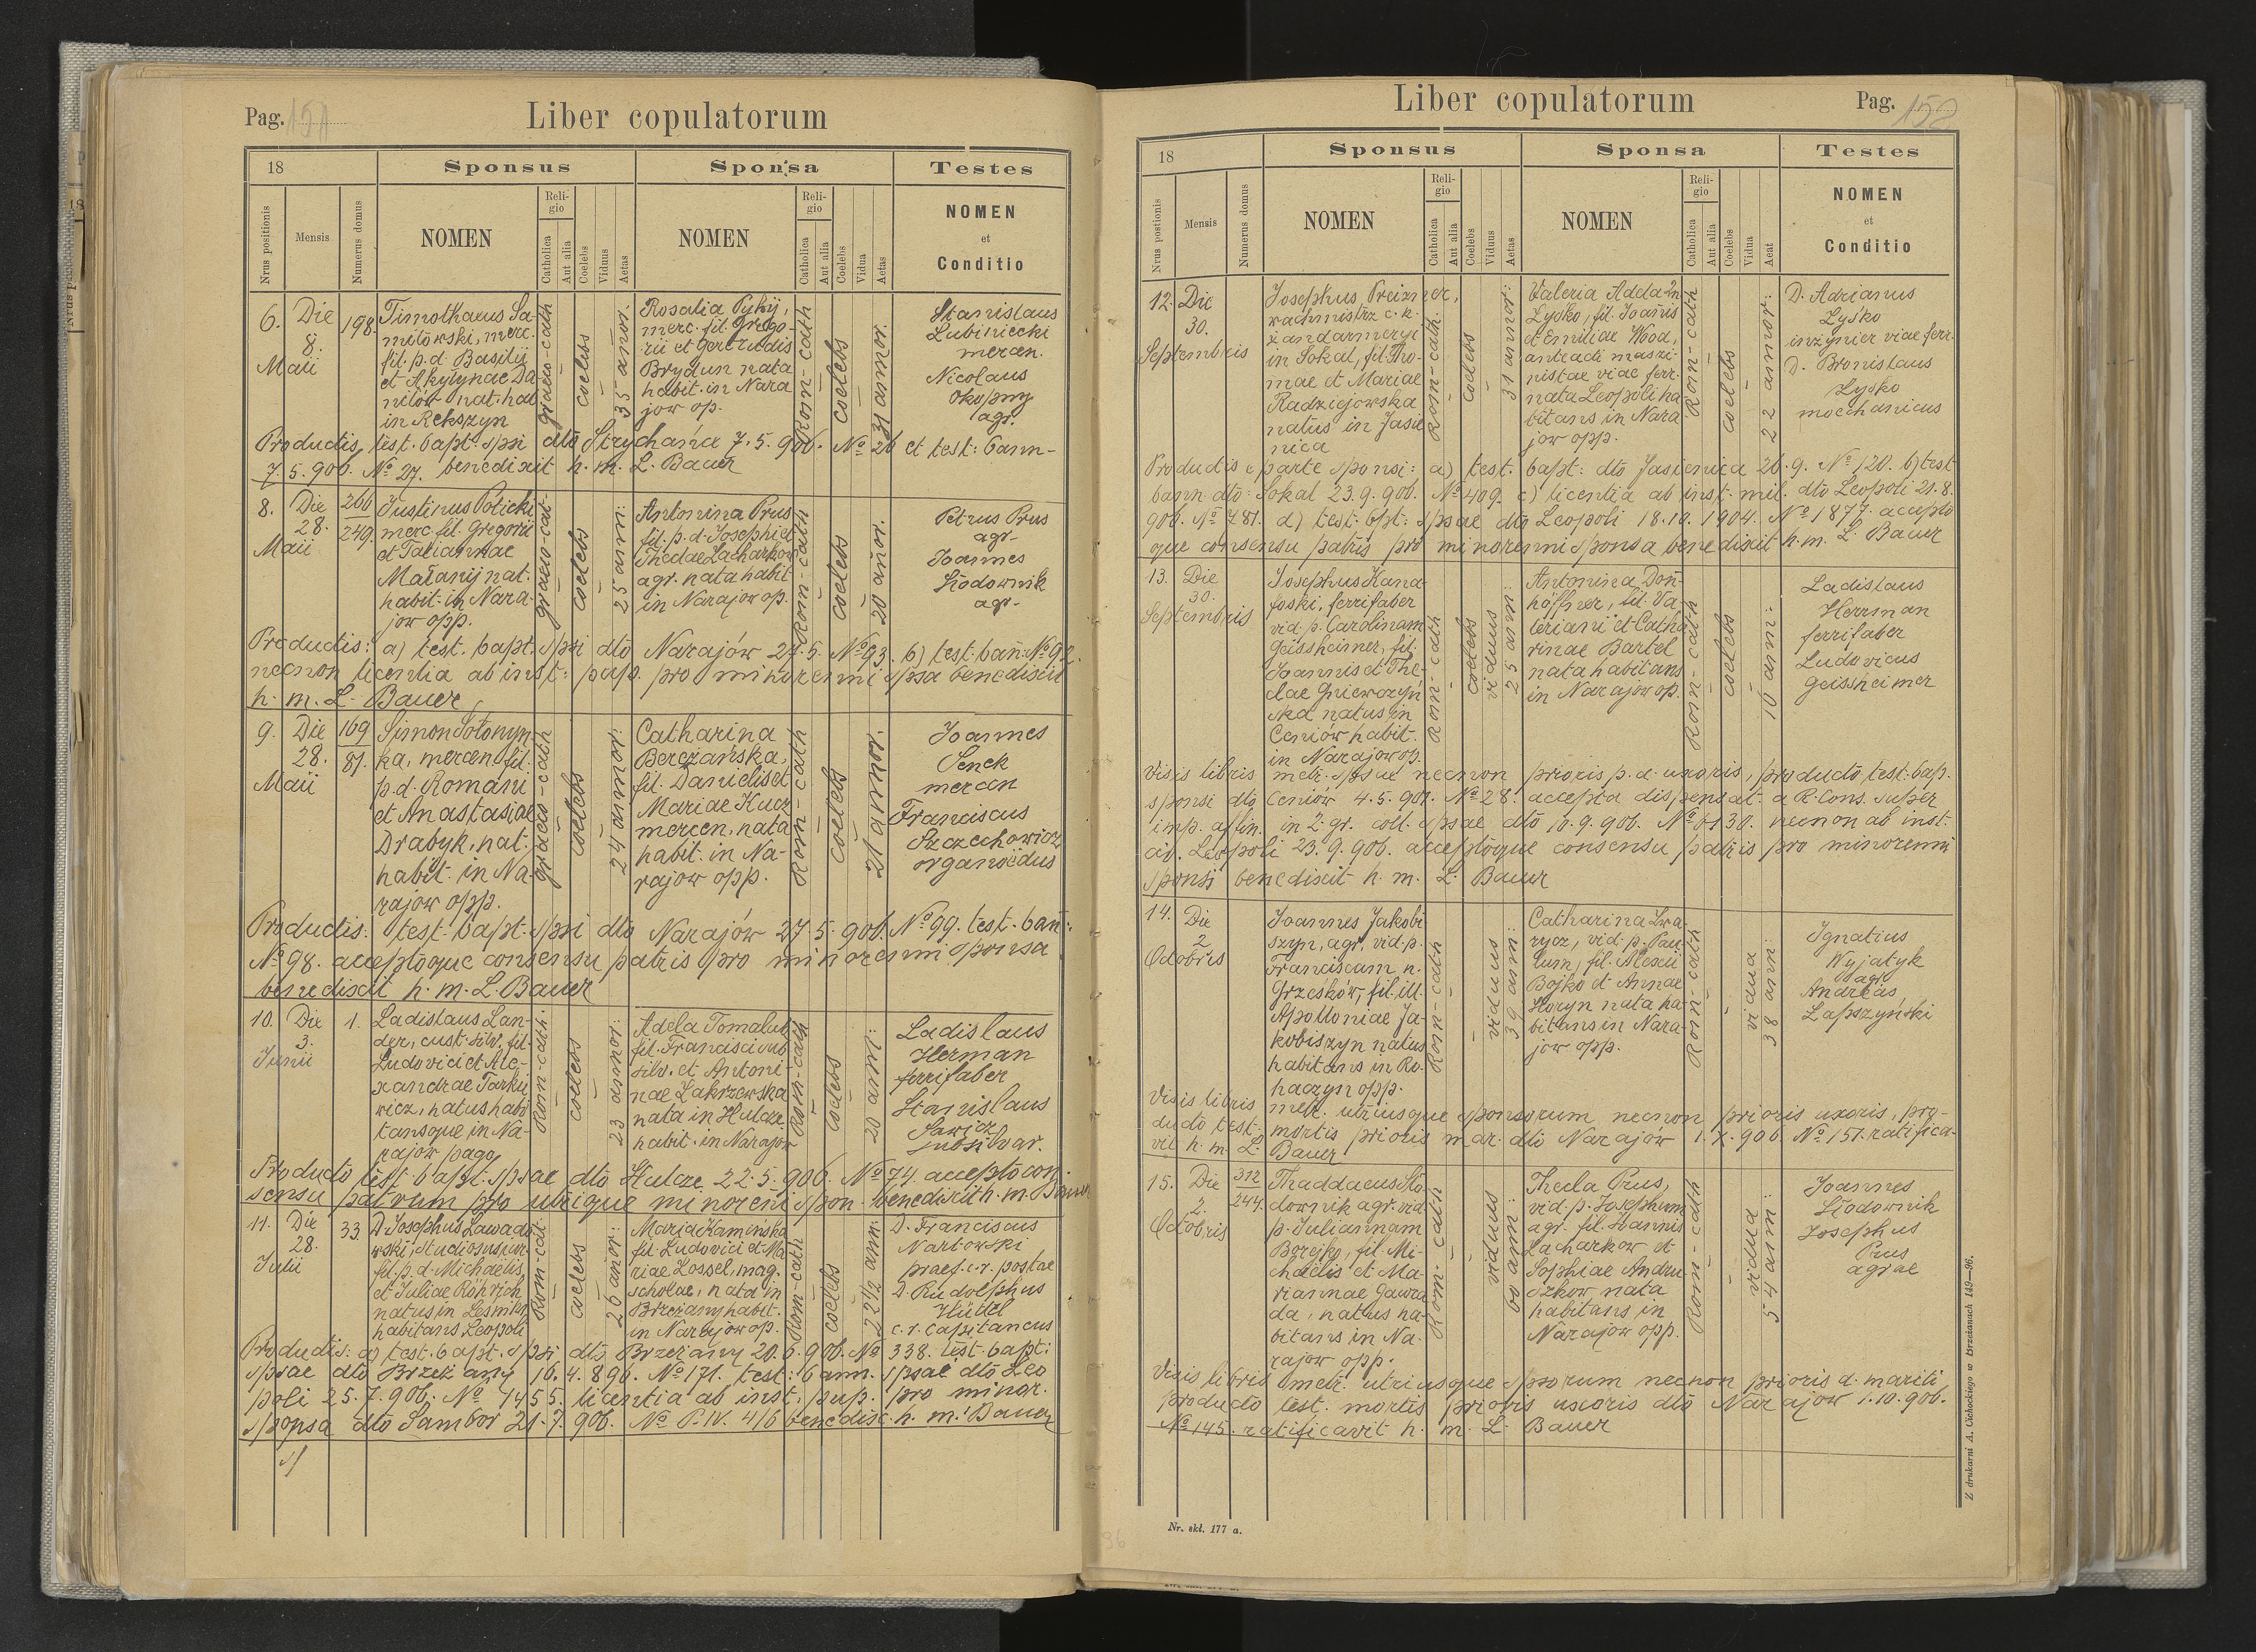 Pag. 151
Liber copulatorum
18
Sponsus
Sponsa
Testes
Nrus positionis
Mensis
Numerus domus
NOMEN
Reli-
gio
Catholica
Aut alia
Coelebs
Viduus
Aetas
NOMEN
Reli-
gio
Catholica
Aut alia
Coelebs
Vidua
Aetas
NOMEN
et
Conditio
6.
Die
8.
Maii
198.
Timothaeus Sa-
milowski, merc.
fil. p. d. Basilii
et Akylynae Da
nilów nat. hab
in Rekszyn
graeco-cath
coelebs
35 añor.
Rosalia Pykij,
merc. fil. Grego-
rii et Gertrudis
Brydun nata
habit. in Nara
jow op.
Rom-cath
coelebs
31 annor.
Stanislaus
Lubiniecki
mercen.
Nicolaus
Okopny
agr.
Productis test. bapt. spsi dto Strychańa 7. 5. 906. № 26 et test: bann-
7. 5. 906. № 27. benedixit h. m. L. Bauer
8.
Die
28.
Maii
266
249.
Justinus Policki
merc. fil. Gregorii
et Tatiannae
Małanij nat.
habit. in Nara-
jow opp.
graeco-cat.
coelebs
25 ann:
Antonina Prus
fil. p. d. Josephi et
Theclae Lacharkow
agr. nata habit
in Narajow op.
Rom-cath
coelebs
20 añor.
Petrus Prus
agr-
Joannes
Słodownik
agr-
Productis: a) test. bapt. spsi dto Narajów 27. 5. № 93. b) test. bañ: № 92.
necnon licentia ab inst: pup. pro minorenni spsa benedixit
h. m. L. Bauer
9.
Die
28.
Maii
169
81.
Simon Sołonyn
ka, mercen. fil.
p. d. Romani
et Anastasiae
Drabyk, nat.
habit. in Na-
rajow opp.
graeco-cath
coelebs
24 annor.
Catharina
Bereżańska,
fil. Danielis et
Mariae Kucz
mercen. nata
habit. in Na-
rajow opp.
Rom-cath
coelebs
21 annor.
Joannes
Senek
mercen
Franciscus
Szczechowicz
organoedus
Productis: test. bapt. spsi dto Narajów 27. 5. 906. № 99. test. bañ:
№ 98. acceptoque consensu patris pro minorenni sponsa
benedixit h. m. L. Bauer
10.
Die
3.
Junii
1.
Ladislaus Lan-
der, cust. silv. fil.
Ludovici et Ale-
xandrae Tarku
wicz, natus habi
tansque in Na-
rajow pago
Rom-cath.
coelebs
23 annor:
Adela Tomalub
fil. Francisci sub
silv. et Antoni-
nae Zakrzewska
nata in Hulcze,
habit. in Narajow
Rom-cath
coelebs
20 ann:
Ladislaus
Herman
ferrifaber
Stanislaus
Sawicz
subsilvar.
Producto test. bapt. spsae dto Hulcze 22. 5. 906. № 74. accepto con-
sensu patrum pro utrique minoreñi spon. benedixit h. m. Bauer
11.
Die
28.
Julii
33.
D. Josephus Lawado
wski, studiosus iur.
fil. p. d. Michaelis
et Juliae Röhrich
natus in Lesniki
habitans Leopoli
Rom-cat.
coelebs
26 añor:
Maria Kamińska
fil. Ludovici et Ma
riae Lossel, mag.
scholae, nata in
Brzezany habit.
in Narajow op.
Rom-cath
coelebs
22 1/2 ann:
D. Franciscus
Nartowski
praef. c. r. postae
D. Rudolphus
Hüttl
c. r. capitaneus
Productis: a) test. bapt. spsi dto Brzeżany 20. 6. 906. № 338. test. bapt:
spsae dto Brzeżany 16. 4. 896. № 171. test: bann. spsae dto Leo
poli 25. 7. 906. № 1455. licentia ab inst. pup. pro minor.
sponsa dto Sambor 21. 7. 906. № P. IV. 4/6 benedix. h. m. Bauer
Pag. 152
Liber copulatorum
18
Sponsus
Sponsa
Testes
Nrus positionis
Mensis
Numerus domus
NOMEN
Reli-
gio
Catholica
Aut alia
Coelebs
Viduus
Aetas
NOMEN
Reli-
gio
Catholica
Aut alia
Coelebs
Vidua
Aeat
NOMEN
et
Conditio
12.
Die
30.
Septembris
Josephus Preizner,
wachmistrz c. k.
żandarmeryi
in Sokal, fil. Tho-
mae et Mariae
Radziejowska
natus in Jasie
nica
Rom-cath.
coelebs
31 annor:
Valeria Adela 2n.
Łysko, fil. Joañis
et Emiliae Wood,
anteacti maszi-
nistae viae ferr.
nata Leopoli ha
bitans in Nara
jow opp.
Rom-cath
coelebs
22 annor:
D. Adrianus
Łysko
inżynier viae ferr.
D. Bronislaus
Łysko
moechanicus
Productis e parte sponsi: a) test. bapt: dto Jasienica 26. 9. № 120. b) test
bann dto: Sokal 23. 9. 906. № 409. c) licentia ab inst. mil. dto Leopoli 21. 8.
906. № 781. d) test. bpt: spsae dto Leopoli 18. 10. 1904. № 1877. accepto
que consensu patris pro minorenni sponsa benedixit h. m. L. Bauer
13.
Die
30.
Septembris
Josephus Kana-
foski, ferrifaber
vid. p. Carolinam
Geissheimer, fil.
Joannis et The-
clae Gniewczyń
ska natus in
Ceniów habit.
in Narajow op.
Rom-cath
coelebs
viduus
25 ann:
Antonina Don-
höffner, fil. Va
leriani et Catha
rinae Bartel
nata habitans
in Narajow op.
Rom-cath
coelebs
16 ann:
Ladislaus
Herrman
ferrifaber
Ludovicus
Geissheimer
Visis libris metr. spsae necnon prioris p. d. uxoris, producto test. bap.
sponsi dto Ceniów 4. 5. 901. № 28. accepta dispensat. a R. Cons. super
imp. affin. in 2. gr. coll. spsae dto 10. 9. 906. № 6130. necnon ab inst.
civ. Leopoli 23. 9. 906. acceptoque consensu patris pro minorenni
sponsi benedixit h. m. L. Bauer
14.
Die
2
Octobris
Joannes Jakobi
szyn, agr. vid. p.
Franciscam n.
Grzesków, fil. ill.
Apolloniae Ja-
kobiszyn natus
habitans in Ro-
haczyn opp.
Rom-cath
viduus
39 ann:
Catharina Lwa-
rycz, vid. p. Pau
lum, fil. Alexii
Bojko et Annae
Horyn nata ha-
bitans in Nara-
jow opp.
Rom-cath
vidua
38 ann:
Ignatius
Wyjatyk
agr.
Andreas
Łapszyński
Visis libris metr. utriusque sponsorum necnon prioris uxoris, pro-
ducto test. mortis prioris mar. dto Narajów 1. X. 906. № 151. ratifica-
vit h. m. L. Bauer
15.
Die
2.
Octobris
312
244.
Thaddaeus Sło-
downik agr. vid
p. Juliannam
Borejko, fil. Mi-
chaelis et Ma-
riannae Gawra
da, natus ha-
bitans in Na-
rajow opp.
Rom-cath
viduus
60 ann:
Thecla Prus,
vid. p. Josephum
agr. fil. Joannis
Lacharkow et
Sophiae Andru
szkow nata
habitans in
Narajow opp.
Rom-cath
vidua
54 ann:
Joannes
Słodownik
Josephus
Prus
agrae
Visis libris metr. utriusque spsorum necnon prioris d. mariti,
producto test. mortis prioris uxoris dto Narajow 1. 10. 906.
№ 145. ratificavit h. m. L. Bauer
Nr. skł. 177 a.
Z drukarni A. Cichockiego w Brzeżanach 149—96.